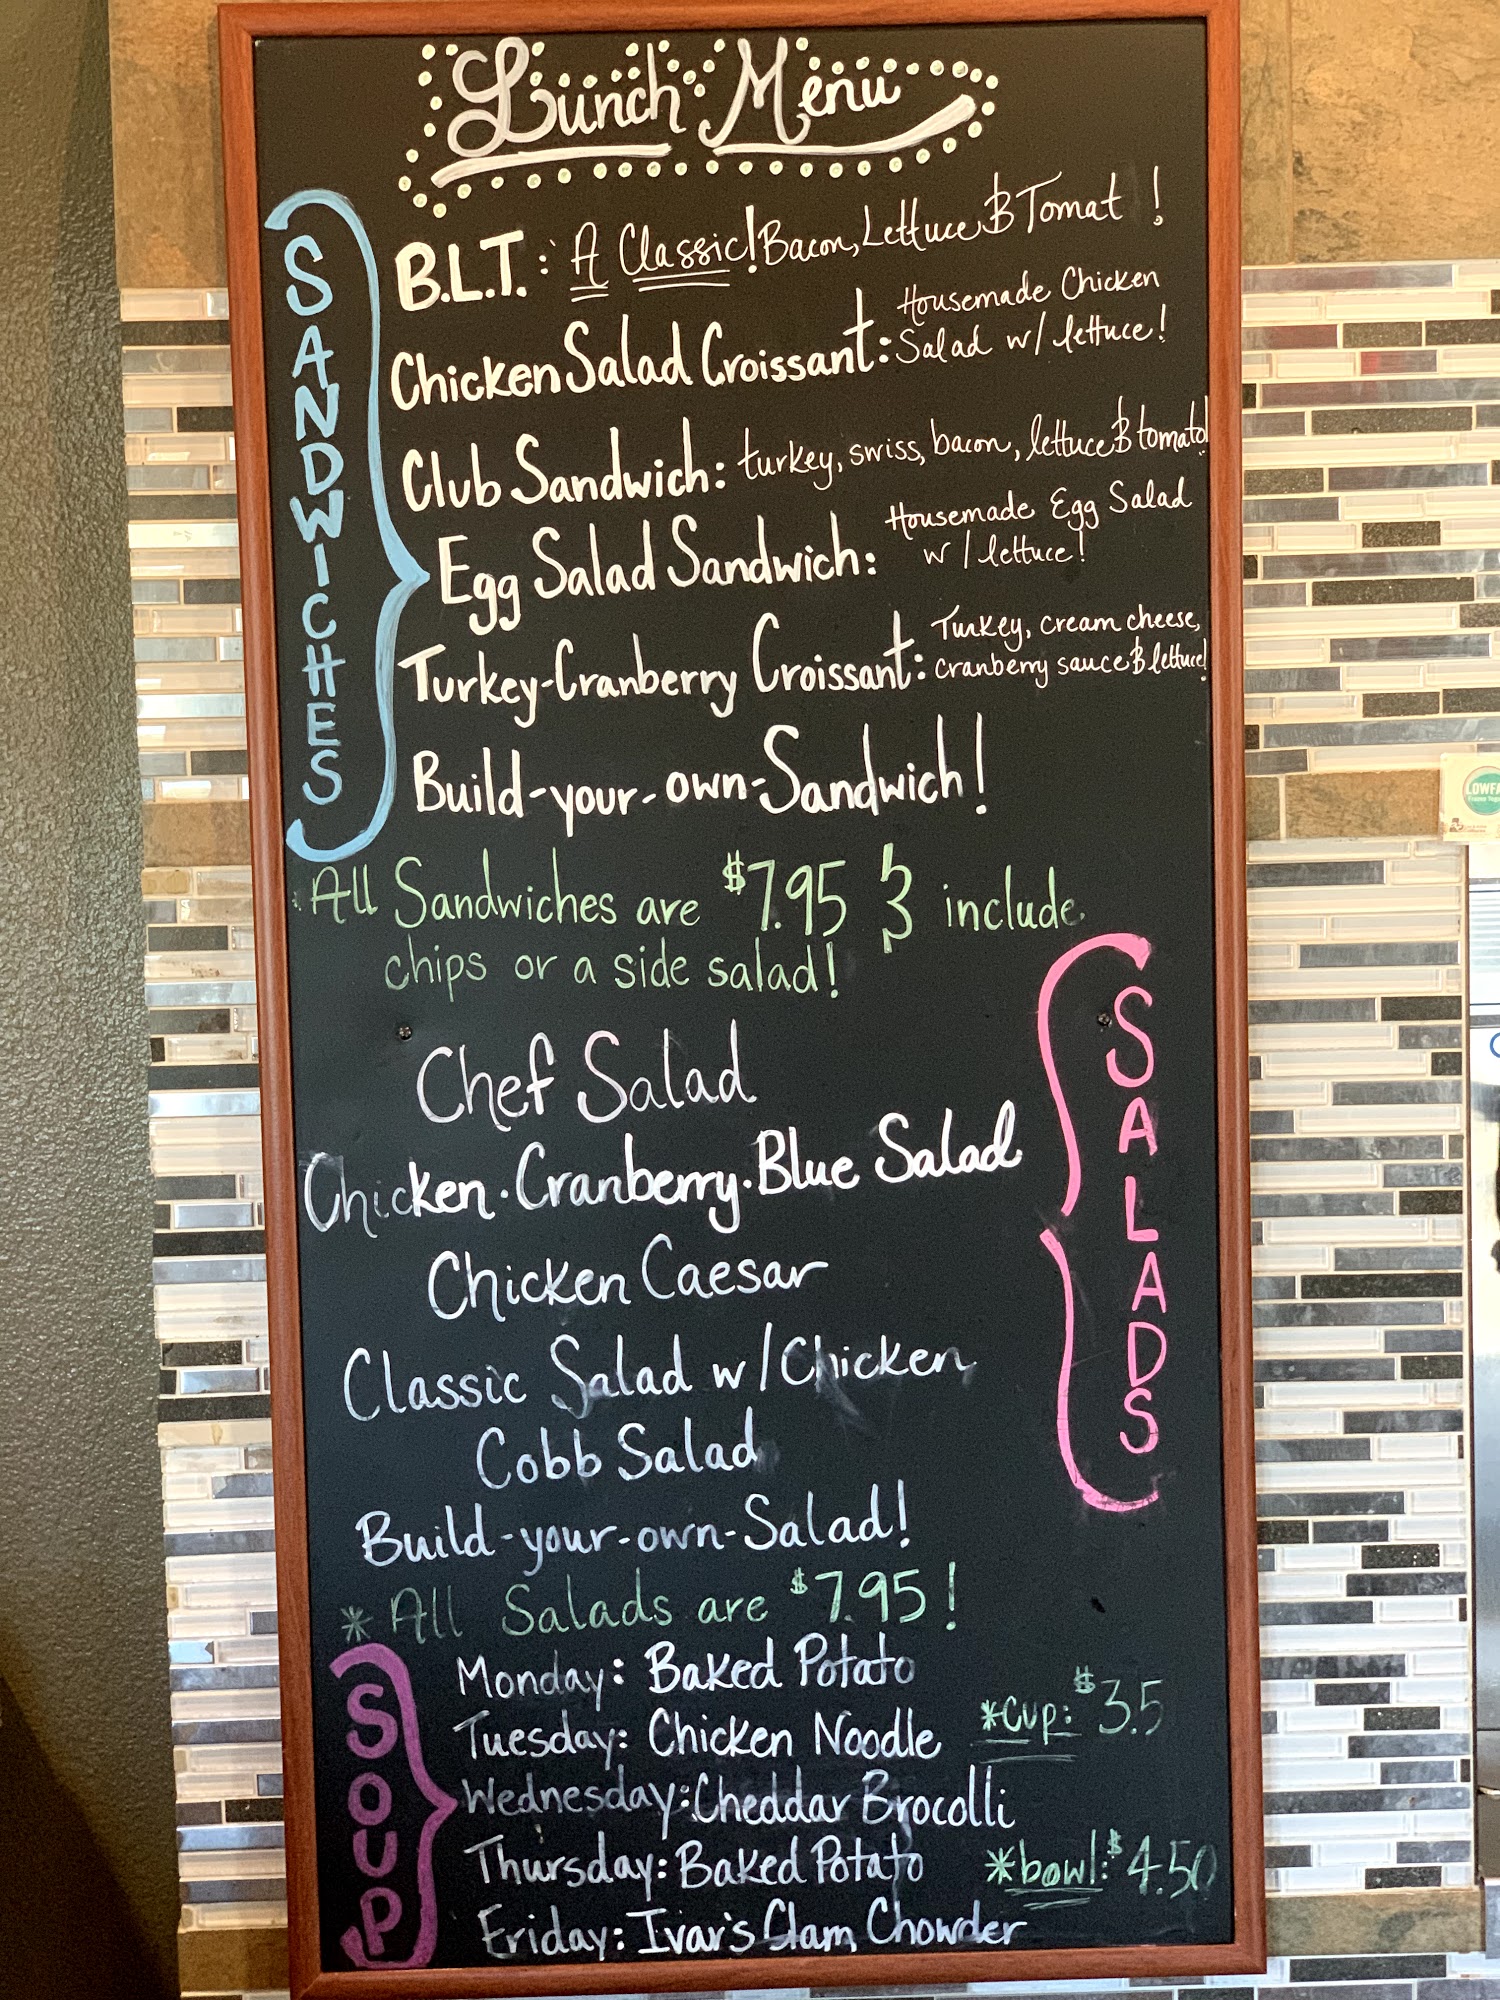 Lunch Menu
SANDWICHES
B.L.T.: A Classic! Bacon, Lettuce & Tomat !
Chicken Salad Croissant: Housemade Chicken
Salad w/ lettuce!
Club Sandwich: turkey, swiss, bacon, lettuce & tomato!
Egg Salad Sandwich: Housemade Egg Salad
w/ lettuce!
Turkey-Cranberry Croissant: Turkey, cream cheese,
cranberry sauce & lettuce!
Build-your-own-Sandwich!
All Sandwiches are $7.95 & include
chips or a side salad!
SALADS
Chef Salad
Chicken.Cranberry.Blue Salad
Chicken Caesar
Classic Salad w/ Chicken
Cobb Salad
Build-your-own-Salad!
* All Salads are $7.95!
SOUP
Monday: Baked Potato
Tuesday: Chicken Noodle
*Cup: $3.5
Wednesday: Cheddar Brocolli
Thursday: Baked Potato
*bowl: $4.50
Friday: Ivar's Clam Chowder